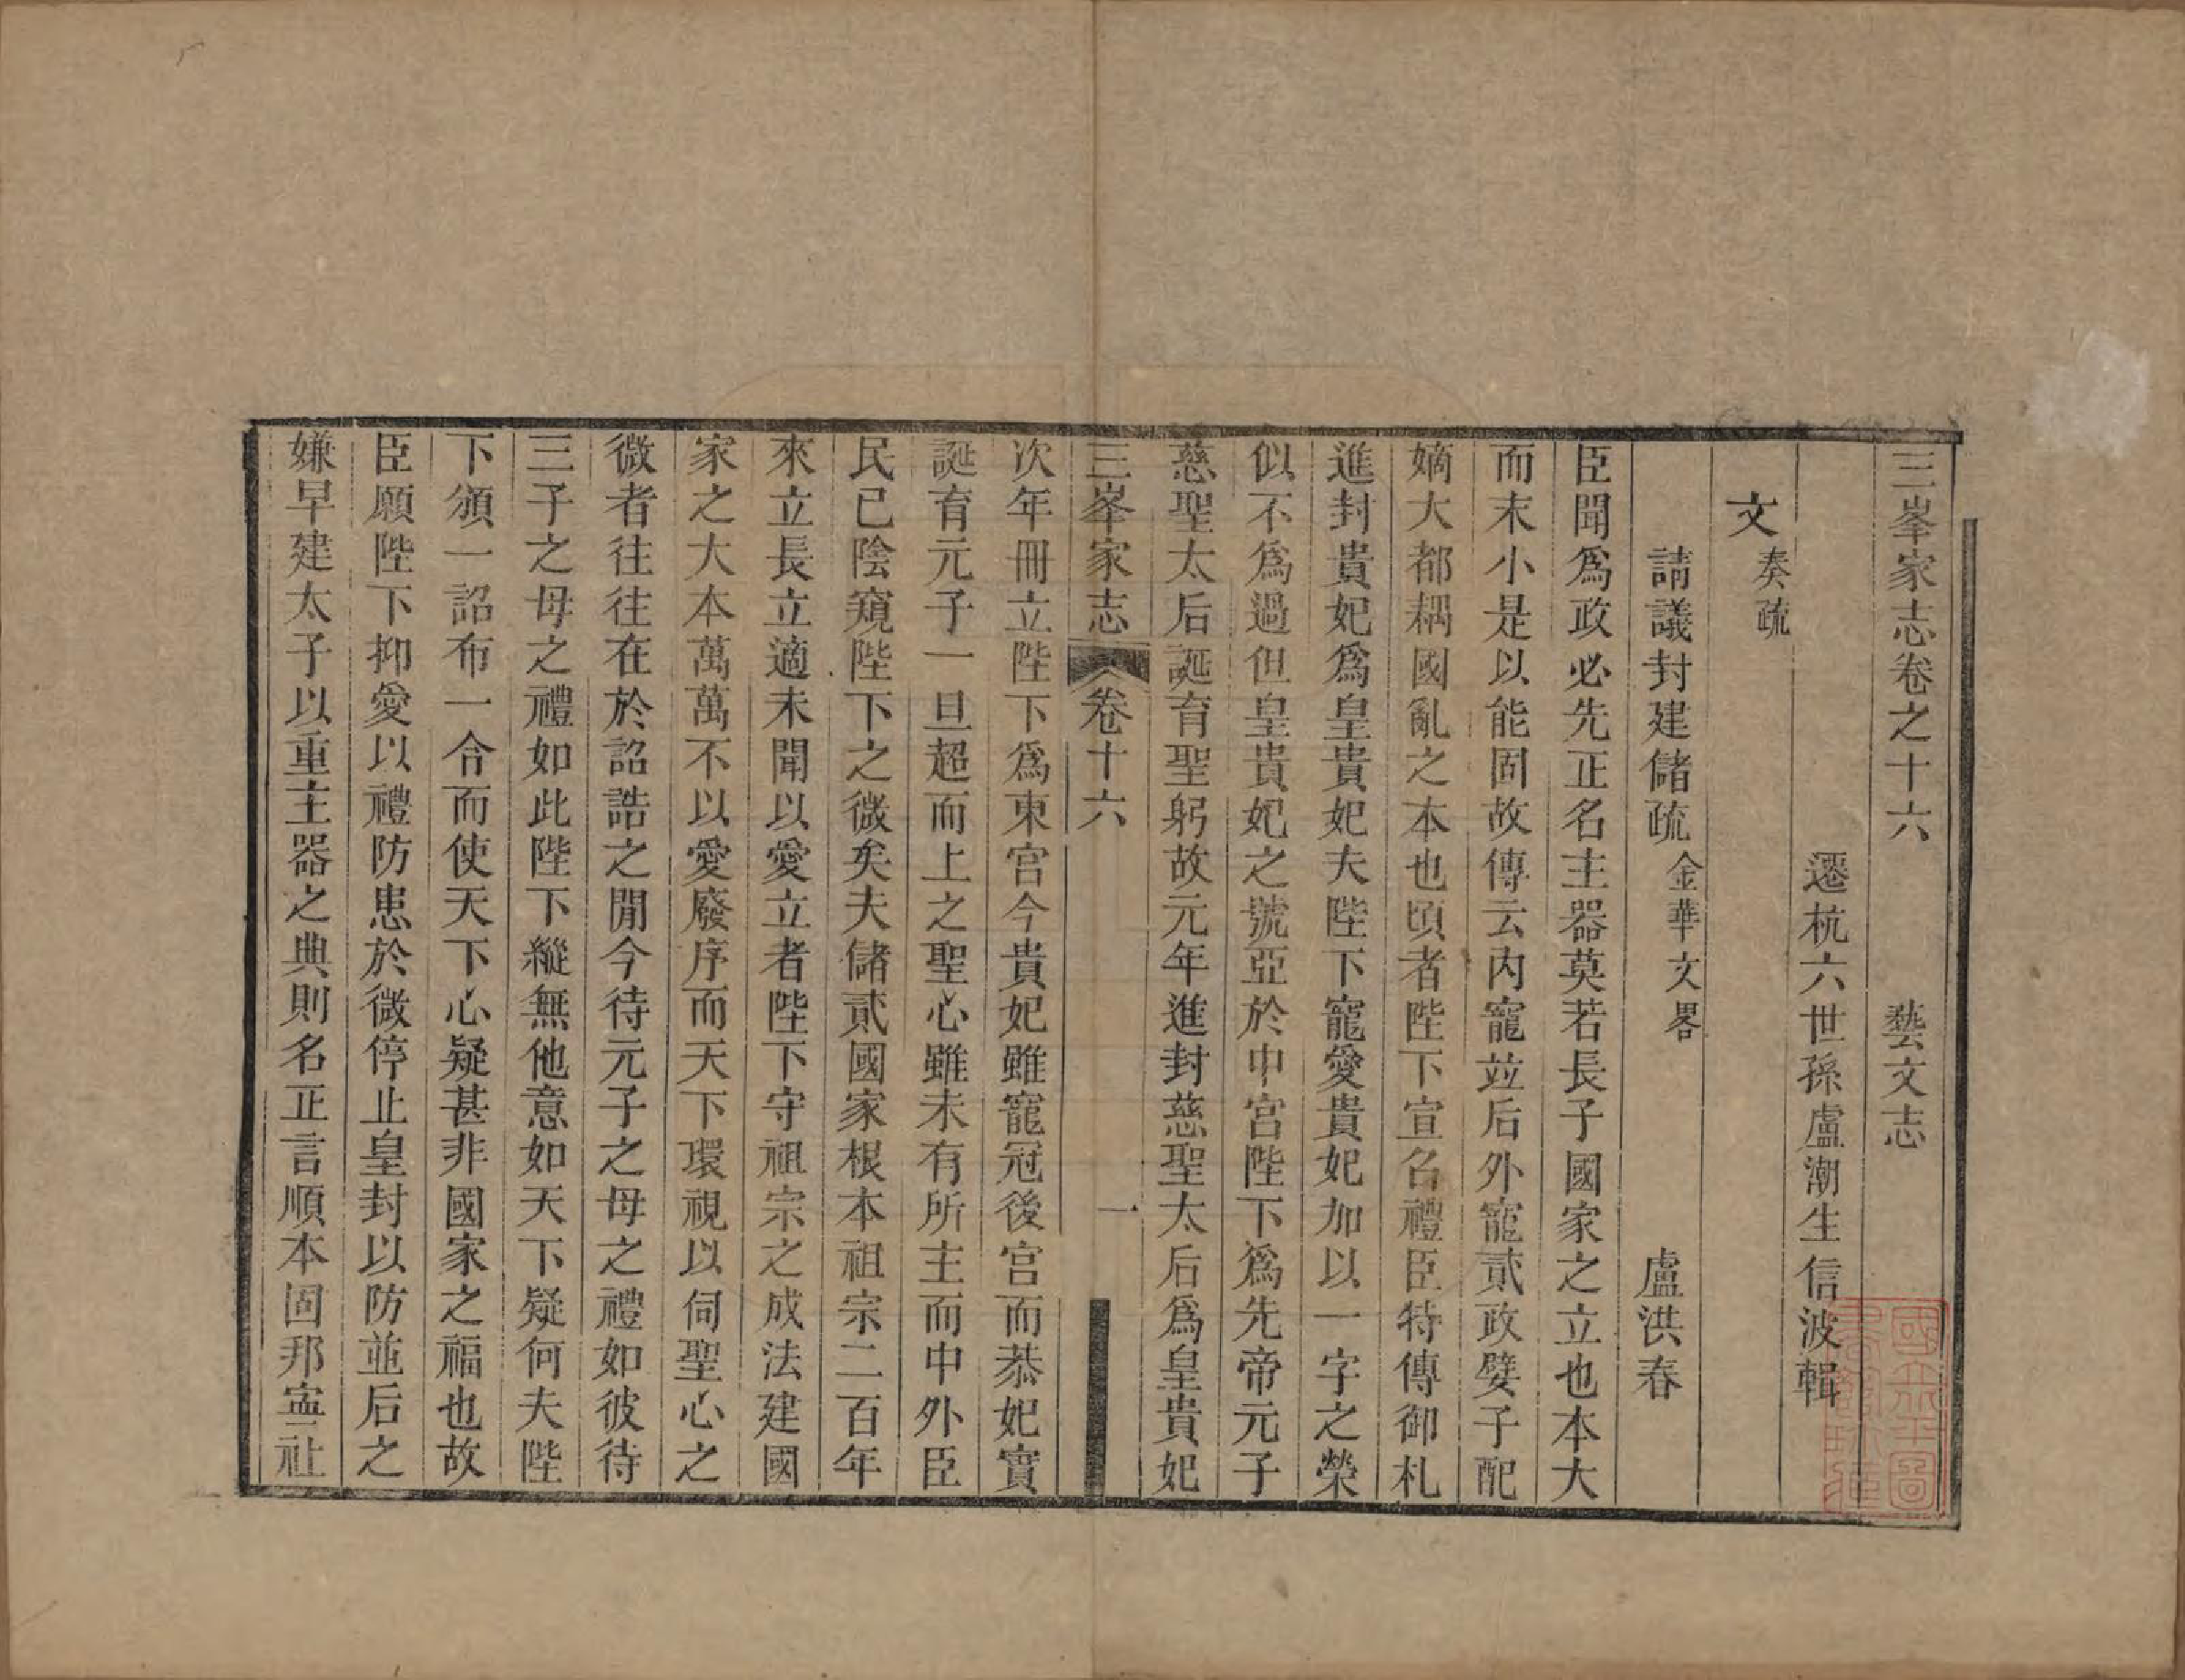 三峯家志卷之十六　藝文志
遷杭六世孫盧潮生信波輯
文奏疏
請議封建儲疏金華文畧　盧洪春
臣聞爲政必先正名主器莫若長子國家之立也本大
而末小是以能固故傳云内寵竝后外寵貳政嬖子配
嫡大都耦國亂之本也頃者陛下宣召禮臣特傳御札
進封貴妃爲皇貴妃夫陛下寵愛貴妃加以一字之榮
似不爲過但皇貴妃之號亞於中宮陛下爲先帝元子
慈聖太后誕育聖躬故元年進封慈聖太后爲皇貴妃
三峯家志　卷十六　一
次年冊立陛下爲東宮今貴妃雖寵冠後宮而恭妃實
誕育元子一旦超而上之聖心雖未有所主而中外臣
民已陰窺陛下之微矣夫儲貳國家根本祖宗二百年
來立長立適未聞以愛立者陛下守祖宗之成法建國
家之大本萬萬不以愛廢序而天下環視以伺聖心之
微者往往在於詔誥之閒今待元子之母之禮如彼待
三子之母之禮如此陛下縱無他意如天下疑何夫陛
下頒一詔布一令而使天下心疑甚非國家之福也故
臣願陛下抑愛以禮防患於微停止皇封以防並后之
嫌早建太子以重主器之典則名正言順本固邦寍社